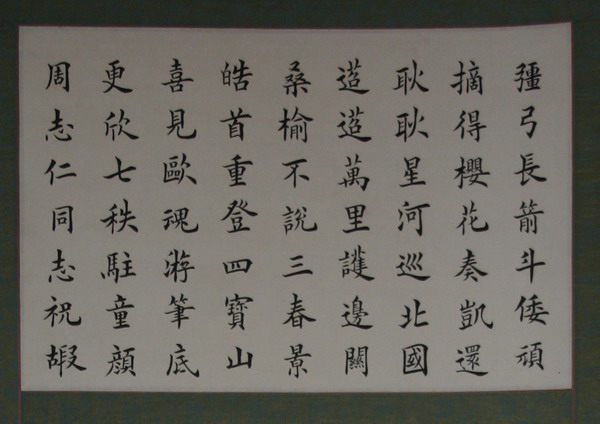 彊弓長箭斗倭頑
摘得櫻花奏凱還
耿耿星河巡北國
迢迢萬里護邊關
桑榆不說三春景
皓首重登四寶山
喜見歐魂游筆底
更欣七秩駐童顏
周志仁同志祝嘏